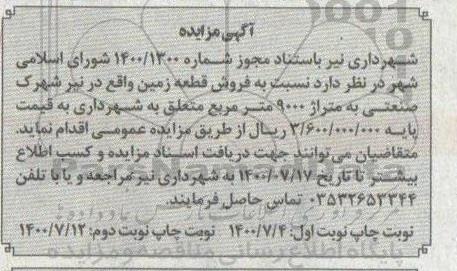 آگهی مزایده
شهرداری نیر باستناد مجوز شماره ۱۴۰۰/۱۳۰۰ شورای اسلامی
شهر در نظر دارد نسبت به فروش قطعه زمین واقع در نیر شهرک
صنعتی به متراژ ۹۰۰۰ متر مربع متعلق به شهرداری به قیمت
پایه ۳/۶۰۰/۰۰۰/۰۰۰ ریال از طریق مزایده عمومی اقدام نماید.
متقاضیان می توانند جهت دریافت اسناد مزایده و کسب اطلاع
بیشتر تا تاریخ ۱۴۰۰/۰۷/۱۷ به شهرداری نیر مراجعه و یا با تلفن
۰۳۵۳۲۶۵۳۳۴۴ تماس حاصل فرمایند.
نوبت چاپ نوبت اول: ۱۴۰۰/۷/۴ نوبت چاپ نوبت دوم: ۱۴۰۰/۷/۱۲
پایگاه اطلاع رسانی مناقصه و مزایده